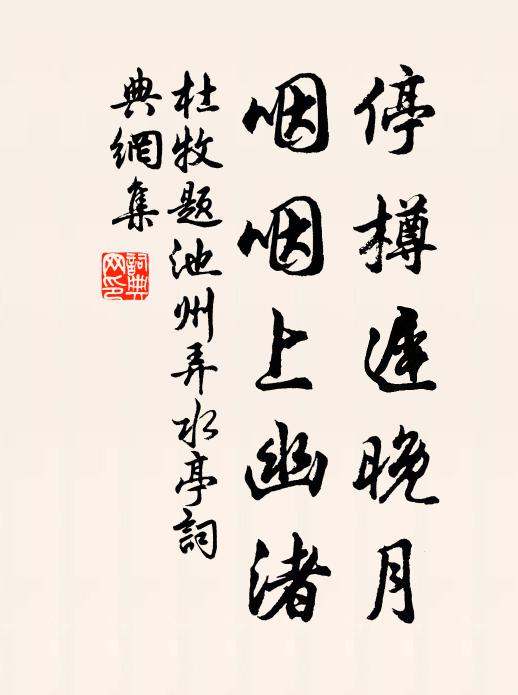 停樽遲晚月
咽咽上幽渚
杜牧題池州弄水亭詞
典網集
詞典網印